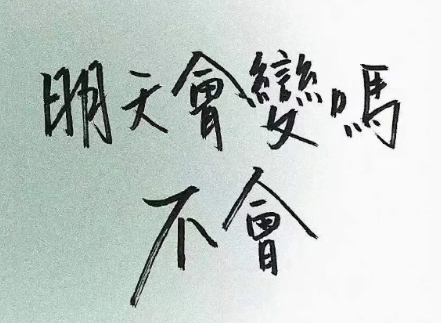 明天會變嗎
不會